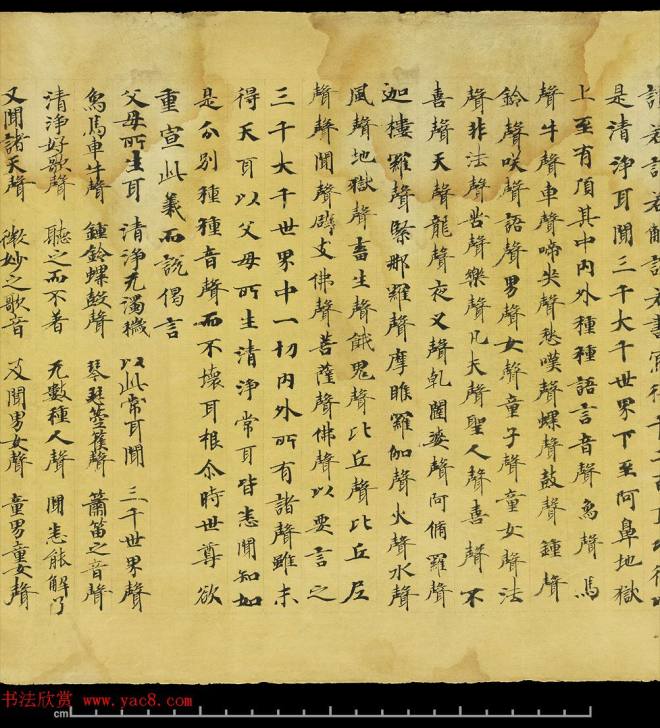 是清淨耳聞三千大千世界下至阿鼻地獄
上至有頂其中內外種種語言音聲象聲馬
聲牛聲車聲啼哭聲愁嘆聲螺聲鼓聲鍾聲
鈴聲咲聲語聲男聲女聲童子聲童女聲法
聲非法聲苦聲樂聲凡夫聲聖人聲喜聲不
喜聲天聲龍聲夜叉聲乾闥婆聲阿脩羅聲
迦樓羅聲緊那羅聲摩睺羅伽聲火聲水聲
風聲地獄聲畜生聲餓鬼聲比丘聲比丘尼
聲聲聞聲辟支佛聲菩薩聲佛聲以要言之
三千大千世界中一切內外所有諸聲雖未
得天耳以父母所生清淨常耳皆悉聞知如
是分別種種音聲而不壞耳根尒時世尊欲
重宣此義而說偈言
父母所生耳 清淨无濁穢 以此常耳聞 三千世界聲
象馬車牛聲 鍾鈴螺鼓聲 琴瑟箜篌聲 簫笛之音聲
清淨好歌聲 聽之而不著 无數種人聲 聞悉能解了
又聞諸天聲 微妙之歌音 及聞男女聲 童男童女聲
书法欣赏 www.yac8.com
cm